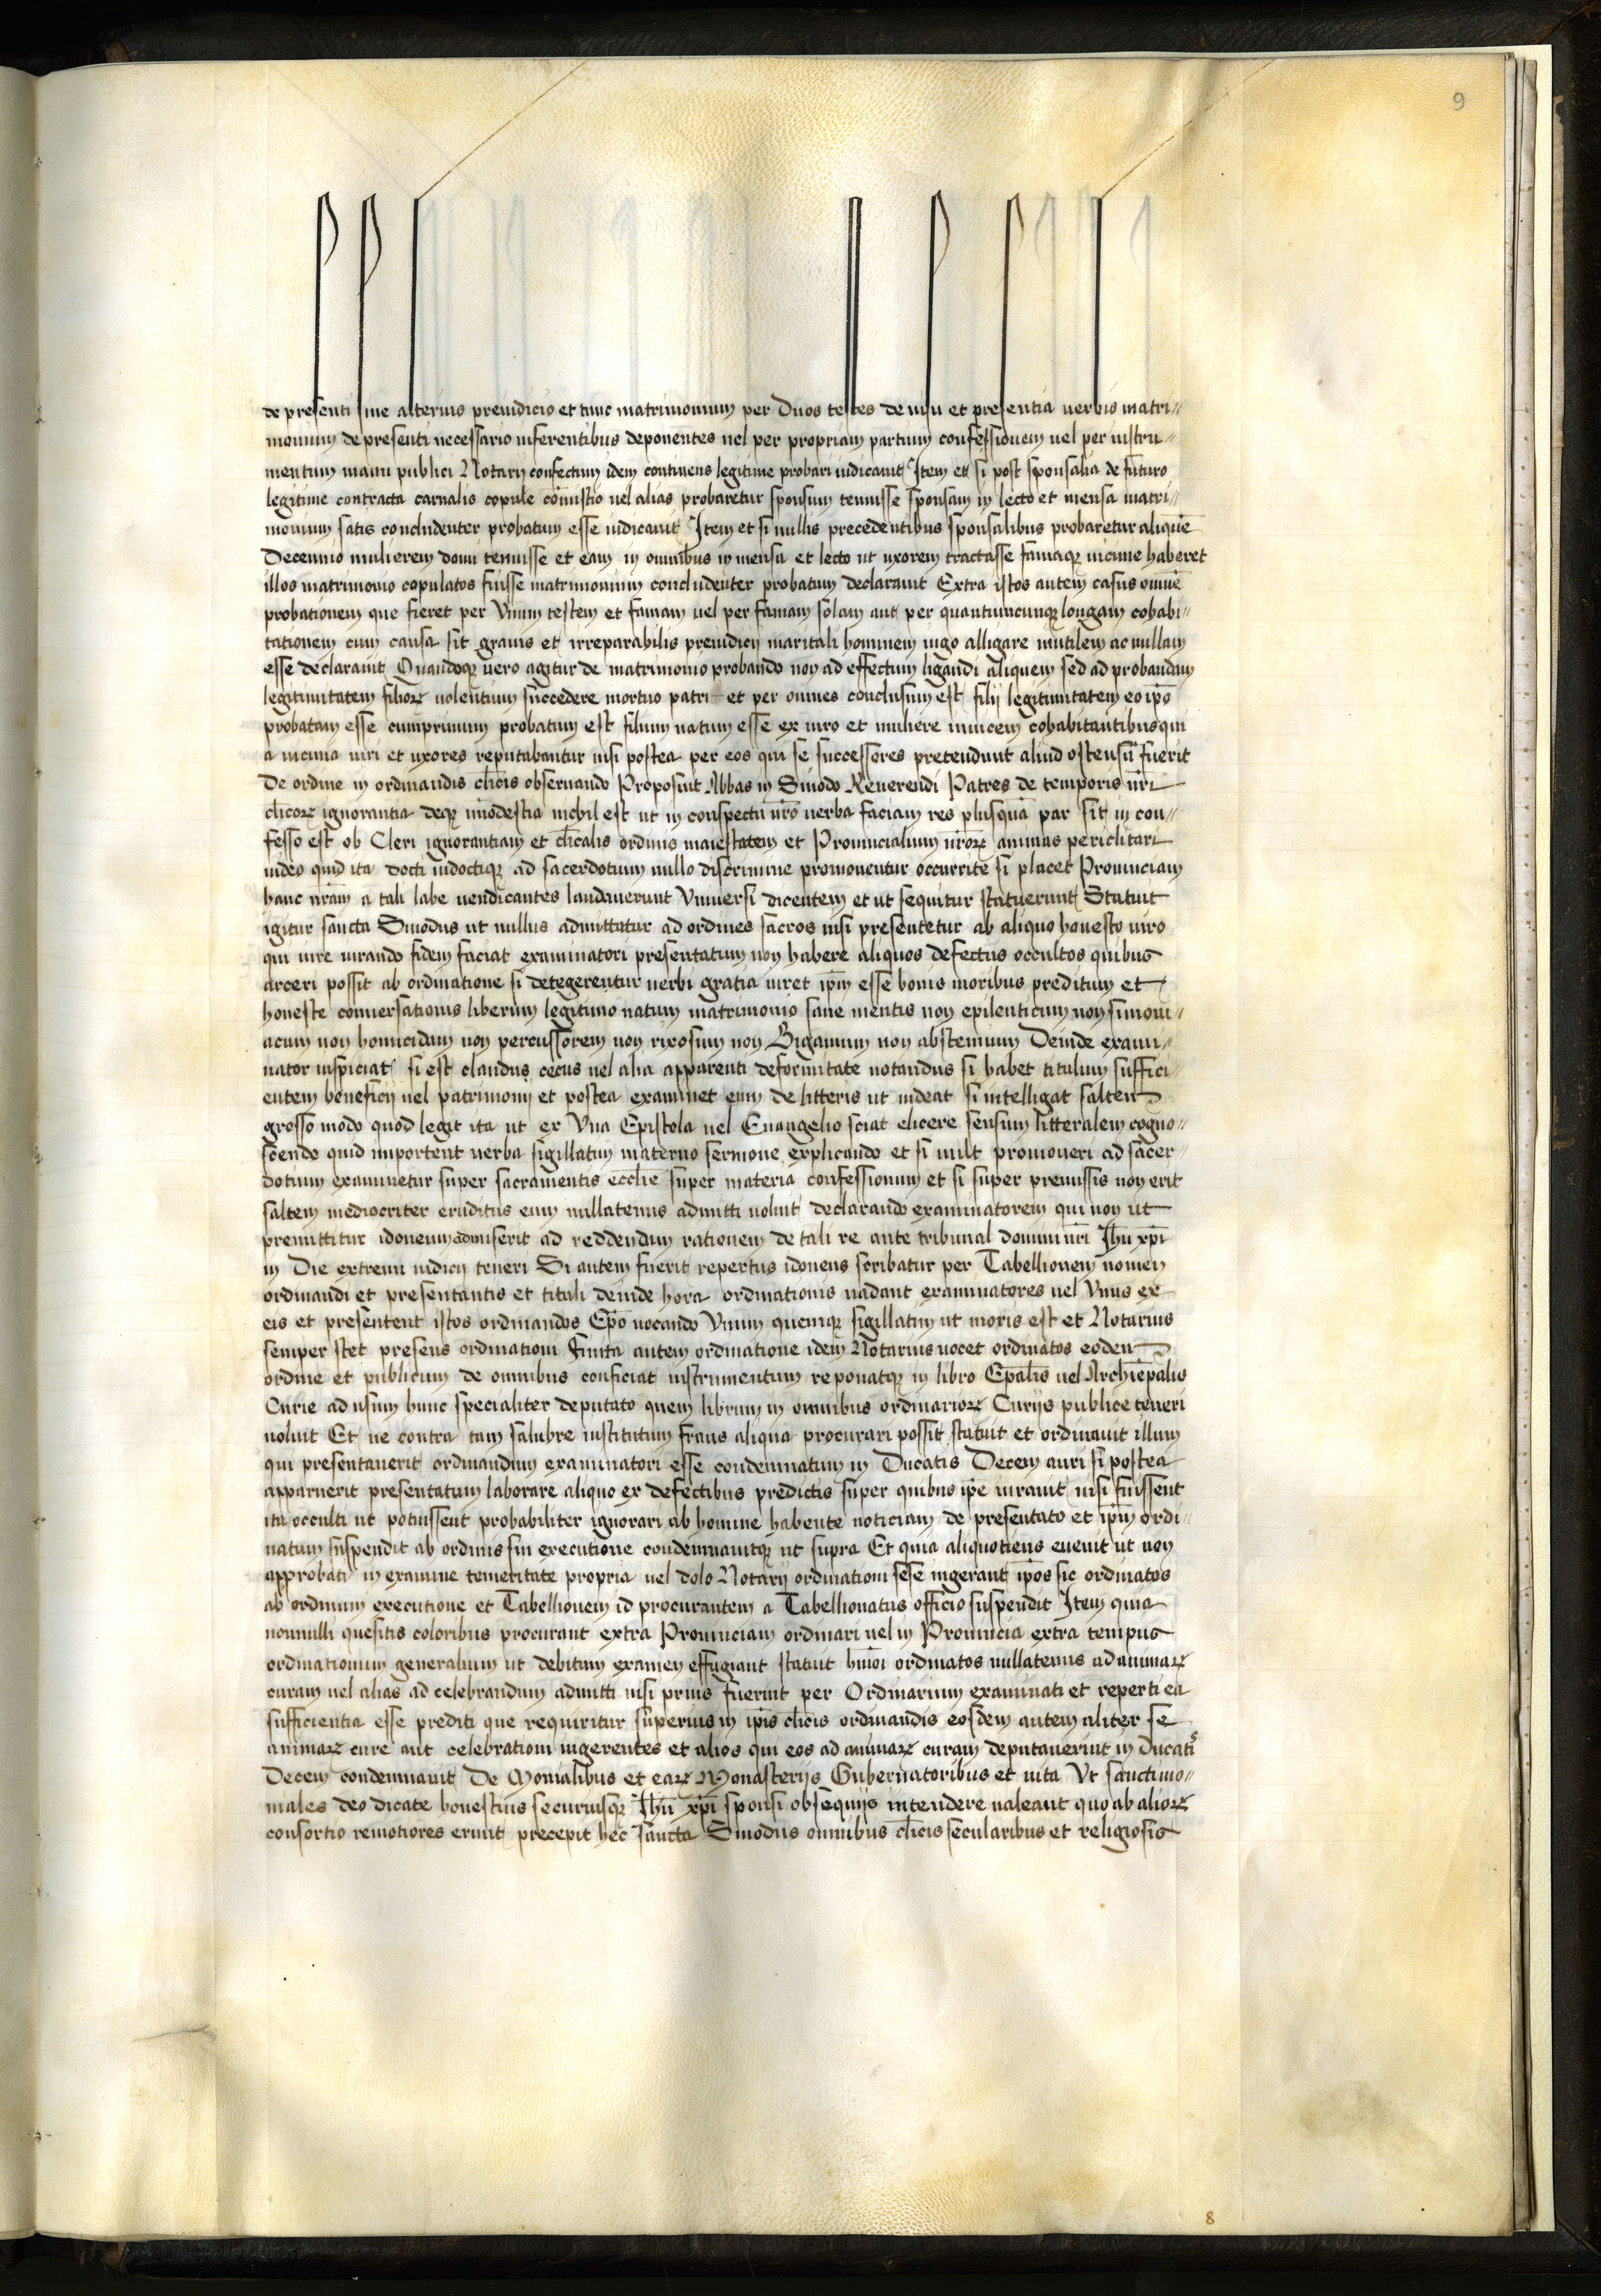 9
de presenti sine alterius preiudicio et tunc matrimonium per Duos testes de uisu et presentia uerbis matri〃
monium de presenti necessario inferentibus deponentes uel per propriam partium confessionem uel per instru〃
mentum manu publici Notarij confectum idem continens legitime probari iudicauit Item et si post sponsalia de futuro
legitime contracta carnalis copule com̄istio uel alias probaretur sponsum tenuisse sponsam in lecto et mensa matri〃
monium satis concludenter probatum esse iudicauit Item et si nullis precedentibus sponsalibus probaretur aliquē
Decennio mulierem domi tenuisse et eam in omnibus in mensa et lecto ut uxorem tractasse famaqꝫ uicinie haberet
illos matrimonio copulatos fuisse matrimonium concludenter probatum declarauit Extra istos autem casus omnē
probationem que fieret per Vnum testem et famam uel per famam solam aut per quantumcunqꝫ longam cohabi〃
tationem cum causa sit grauis et irreparabilis preiudicij maritali hominem iugo alligare inutilem ac nullam
esse declarauit Quandoqꝫ uero agitur de matrimonio probando non ad effectum ligandi aliquem sed ad probandam
legitimitatem filioꝝ uolentium succedere mortuo patri et per omnes conclusum est filij legitimitatem eo ip̄o
probatam esse cumprimum probatum est filium natum esse ex uiro et muliere inuicem cohabitantibus qui
a uicinia uiri et uxores reputabantur nisi postea per eos qui se successores pretendunt aliud ostensū fuerit
De ordine in ordinandis cl̄icis obseruando Proposuit Abbas in Sinodo Reuerendi Patres de temporis nr̄i
cl̄icoꝝ ignorantia deqꝫ im̄odestia nichil est ut in conspectu nr̄o uerba faciam res plusquā par sit in con〃
fesso est ob Cleri ignorantiam et cl̄icalis ordinis maiestatem et Prouincialium nr̄oꝝ animas periclitari
uideo quid ita docti indoctiqꝫ ad sacerdotium nullo discrimine promouentur occurrite si placet Prouinciam
hanc nr̄am a tali labe uendicantes laudauerunt Vniuersi dicentem et ut sequitur statuerunt Statuit
igitur sancta Sinodus ut nullus admittatur ad ordines sacros nisi presentetur ab aliquo honesto uiro
qui iure iurando fidem faciat examinatori presentatum non habere aliquos defectus occultos quibus
arceri possit ab ordinatione si detegerentur uerbi gratia iuret ip̄m esse bonis moribus preditum et
honeste conuersationis liberum legitimo natum matrimonio sane mentis non epilenticum non simoni〃
acum non homicidam non percussorem non rixosum non Bigamum non abstemium Deinde exami〃
nator inspiciat si est claudus cecus uel alia apparenti deformitate notandus si habet titulum suffici〃
entem beneficij uel patrimonij et postea examinet eum de litteris ut uideat si intelligat saltem
grosso modo quod legit ita ut ex Vna Epistola uel Euangelio sciat elicere sensum litteralem cogno〃
scendo quid importent uerba sigillatim materno sermone explicando et si uult promoueri ad sacer〃
dotium examinetur super sacramentis eccl̄ie super materia confessionum et si super premissis non erit
saltem mediocriter eruditus eum nullatenus admitti uoluit declarando examinatorem qui non ut
premittitur idoneum admiserit ad reddendam rationem de tali re ante tribunal domini nr̄i Ih̄u xp̄i
in Die extremi iudicij teneri Si autem fuerit repertus idoneus scribatur per Tabellionem nomen
ordinandi et presentantis et tituli deinde hora ordinationis uadant examinatores uel Vnus ex
eis et presentent istos ordinandos Ep̄o uocando Vnum quemqꝫ sigillatim ut moris est et Notarius
semper stet presens ordinationi Finita autem ordinatione idem Notarius uocet ordinatos eodem
ordine et publicum de omnibus conficiat instrumentum reponatqꝫ in libro Ep̄alis uel Archiep̄alis
Curie ad usum hunc specialiter deputato quem librum in omnibus ordinarioꝝ Curijs publice teneri
uoluit Et ne contra tam salubre institutum fraus aliqua procurari possit statuit et ordinauit illum
qui presentauerit ordinandum examinatori esse condemnatum in Ducatis Decem auri si postea
apparuerit presentatum laborare aliquo ex defectibus predictis super quibus ip̄e iurauit nisi fuissent
ita occulti ut potuissent probabiliter ignorari ab homine habente noticiam de presentato et ip̄m ordi〃
natum suspendit ab ordinis sui executione condemnauitqꝫ ut supra Et quia aliquotiens euenit ut non
approbati in examine temeritate propria uel dolo Notarij ordinationi sese ingerant ip̄os sic ordinatos
ab ordinum executione et Tabellionem id procurantem a Tabellionatus officio suspendit Item quia
nonnulli quesitis coloribus procurant extra Prouinciam ordinari uel in Prouincia extra tempus
ordinationum generalium ut debitum examen effugiant statuit hm̄oi ordinatos nullatenus ad animaꝝ
curam uel alias ad celebrandum admitti nisi prius fuerint per Ordinarium examinati et reperti ea
sufficientia esse prediti que requiritur superius in ip̄is cl̄icis ordinandis eosdem autem aliter se
animaꝝ cure aut celebrationi ingerentes et alios qui eos ad animaꝝ curam deputauerint in ducatis
Decem condemnauit De Monialibus et eaꝝ Monasterijs Gubernatoribus et uita Vt sanctimo〃
niales deo dicate honestius securiusqꝫ Ih̄u xp̄i sponsi obsequijs intendere ualeant quo ab alioꝝ
consortio remotiores erunt precepit hec sancta Sinodus omnibus cl̄icis secularibus et religiosis
8